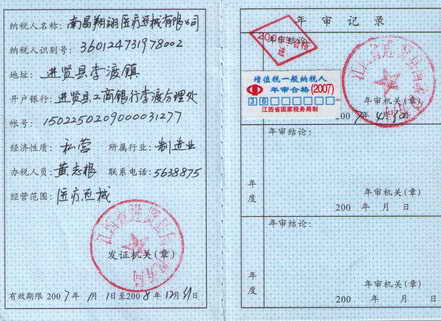 纳税人名称:南昌翔翊医疗器械有限公司
纳税人识别号:360124731978002
地址:进贤县李渡镇
开户银行:进贤县工商银行李渡办理处
帐号:1502250209000031277
经济性质:私营 所属行业:制造业
办税人员:黄志根 联系电话:5638875
经营范围:医疗器械
发证机关(章)
有效期限2007年1月1日至2008年12月31日
年审记录
增值税一般纳税人
年审合格(2007)
江西省国家税务局制
年审机关(章)
年审结论:
年度
年审机关(章)
200 年 月 日
年审结论:
年度
年审机关(章)
200 年 月 日